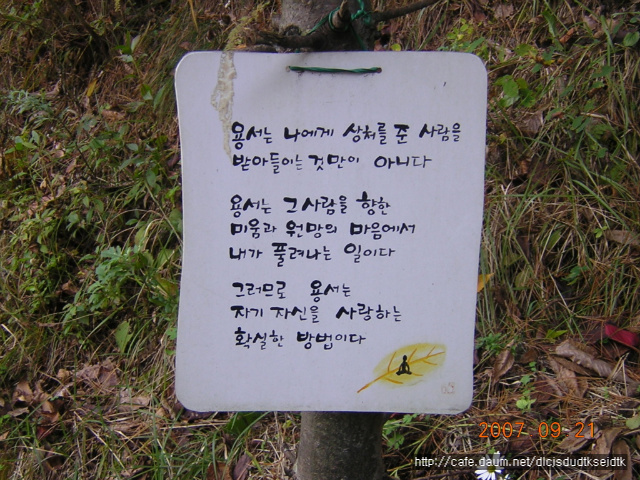 용서는 나에게 상처를 준 사람을
받아들이는 것만이 아니다
용서는 그 사람을 향한
미움과 원망의 마음에서
내가 풀려나는 일이다
그러므로 용서는
자기 자신을 사랑하는
확실한 방법이다
2007 09 21
http://cafe.daum.net/dlcjsdudtksejdtk